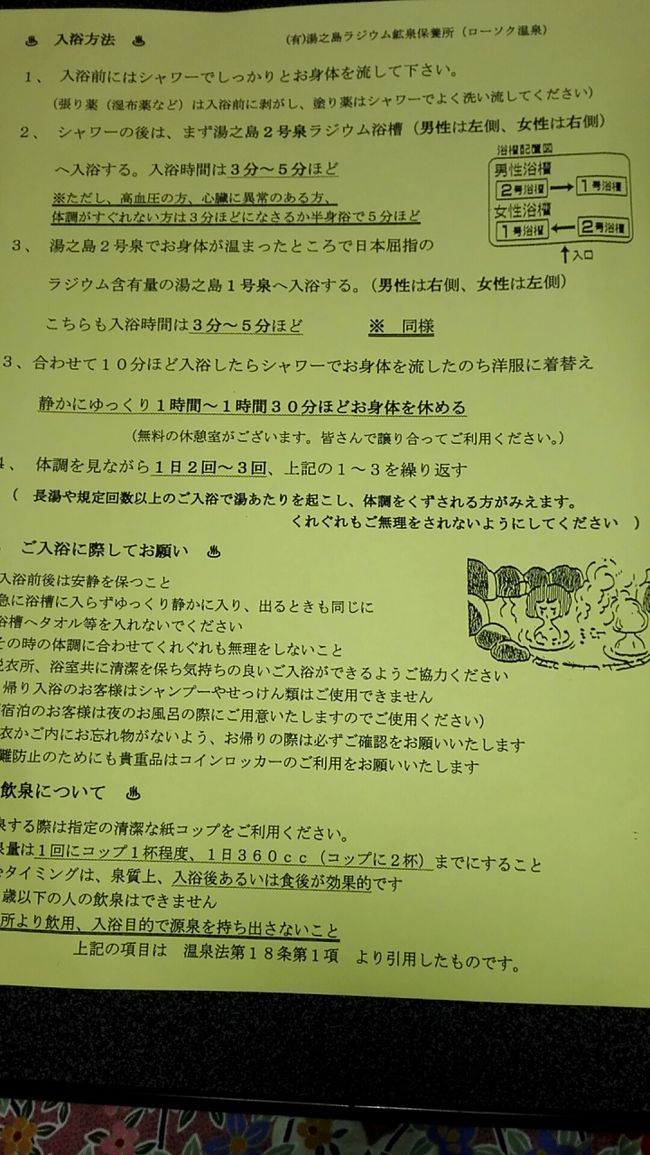 ♨ 入浴方法 ♨ (有)湯之島ラジウム鉱泉保養所（ローソク温泉）
１、 入浴前にはシャワーでしっかりとお身体を流して下さい。
（張り薬（湿布薬など）は入浴前に剥がし、塗り薬はシャワーでよく洗い流してください）
２、 シャワーの後は、まず湯之島２号泉ラジウム浴槽（男性は左側、女性は右側）
へ入浴する。入浴時間は３分～５分ほど
※ただし、高血圧の方、心臓に異常のある方、
体調がすぐれない方は３分ほどになさるか半身浴で５分ほど
浴槽配置図
男性浴槽
２号浴槽 → １号浴槽
女性浴槽
１号浴槽 ← ２号浴槽
↑入口
３、 湯之島２号泉でお身体が温まったところで日本屈指の
ラジウム含有量の湯之島１号泉へ入浴する。（男性は右側、女性は左側）
こちらも入浴時間は３分～５分ほど ※ 同様
３、合わせて１０分ほど入浴したらシャワーでお身体を流したのち洋服に着替え
静かにゆっくり１時間～１時間３０分ほどお身体を休める
（無料の休憩室がございます。皆さんで譲り合ってご利用ください。）
４、 体調を見ながら１日２回～３回、上記の１～３を繰り返す
（ 長湯や規定回数以上のご入浴で湯あたりを起こし、体調をくずされる方がみえます。
くれぐれもご無理をされないようにしてください ）
ご入浴に際してお願い ♨
入浴前後は安静を保つこと
急に浴槽に入らずゆっくり静かに入り、出るときも同じに
浴槽へタオル等を入れないでください
その時の体調に合わせてくれぐれも無理をしないこと
脱衣所、浴室共に清潔を保ち気持ちの良いご入浴ができるようご協力ください
帰り入浴のお客様はシャンプーやせっけん類はご使用できません
宿泊のお客様は夜のお風呂の際にご用意いたしますのでご使用ください）
衣かご内にお忘れ物がないよう、お帰りの際は必ずご確認をお願いいたします
難防止のためにも貴重品はコインロッカーのご利用をお願いいたします
飲泉について ♨
泉する際は指定の清潔な紙コップをご利用ください。
泉量は１回にコップ１杯程度、１日３６０ｃｃ（コップに２杯）までにすること
タイミングは、泉質上、入浴後あるいは食後が効果的です
歳以下の人の飲泉はできません
所より飲用、入浴目的で源泉を持ち出さないこと
上記の項目は 温泉法第１８条第１項 より引用したものです。